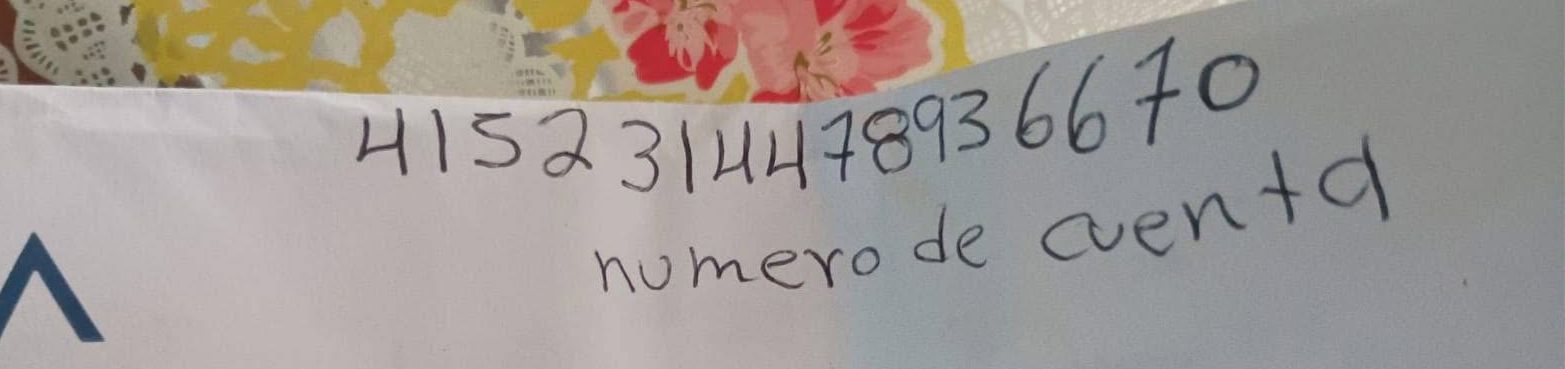 4152314478936670
numero de cuenta